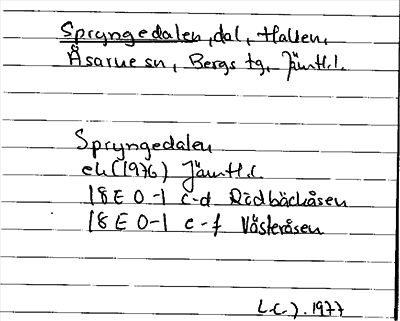 Spryngedalen, dal, Hallen,
Åsarne sn, Bergs tg, Jämtl.l.
Spryngedalen
ek (1976) Jämtl.l.
18 E 0-1 c-d Rödbäckåsen
18 E 0-1 e-f Västeråsen
1977